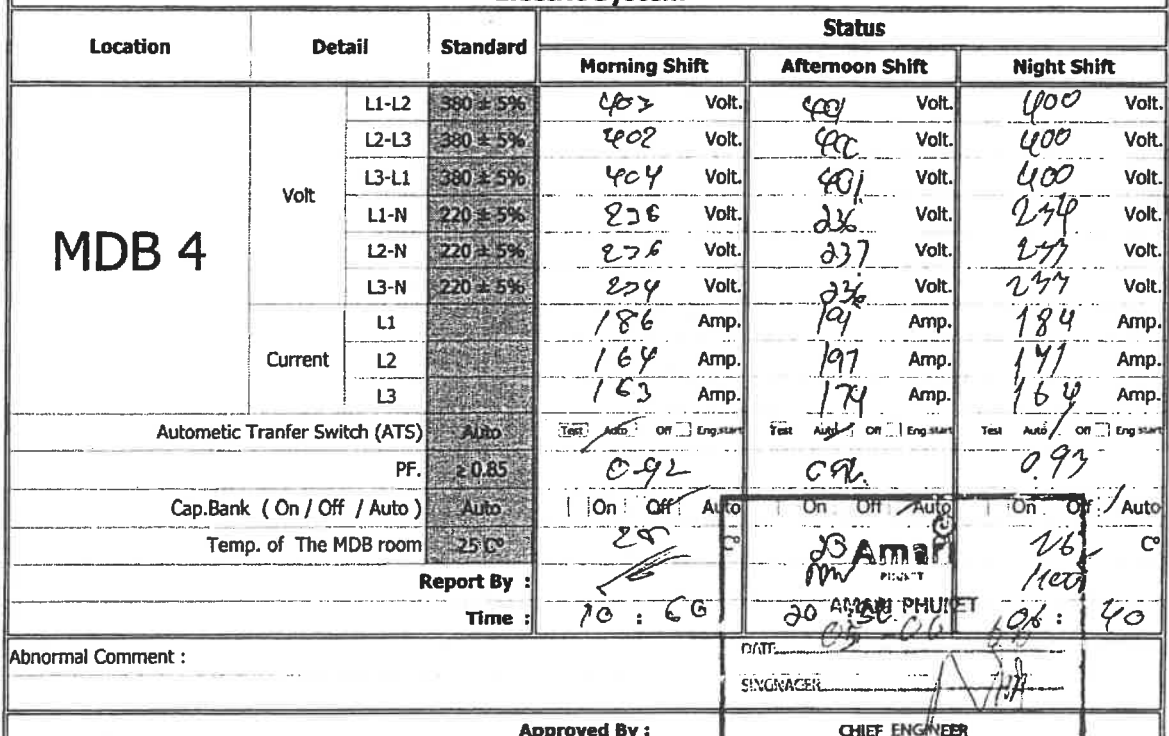 Status
Location Detail Standard
Morning Shift Afternoon Shift Night Shift
MDB 4
Volt
L1-L2 380 ± 5% 403 Volt. 401 Volt. 400 Volt.
L2-L3 380 ± 5% 402 Volt. Volt. 400 Volt.
L3-L1 380 ± 5% 404 Volt. 401 Volt. 400 Volt.
L1-N 220 ± 5% 236 Volt. 236 Volt. 234 Volt.
L2-N 220 ± 5% 236 Volt. 237 Volt. 233 Volt.
L3-N 220 ± 5% 234 Volt. 236 Volt. 233 Volt.
Current
L1 186 Amp. 191 Amp. 184 Amp.
L2 164 Amp. 197 Amp. Amp.
L3 163 Amp. 174 Amp. 164 Amp.
Autometic Tranfer Switch (ATS) Auto Test Auto Off Eng.start Test Auto Off Eng.start Test Auto Off Eng start
PF. ≥ 0.85 0.92 0.93
Cap.Bank ( On / Off / Auto ) Auto On Off Auto On Off Auto On Off Auto
Temp. of The MDB room 25 C° C° 26 C°
Report By :
Time : 20 : 06 : 40
Amari
PHUKET
AMARI PHUKET
Abnormal Comment :
DATE
SINGNAGER
Approved By : CHIEF ENGINEER